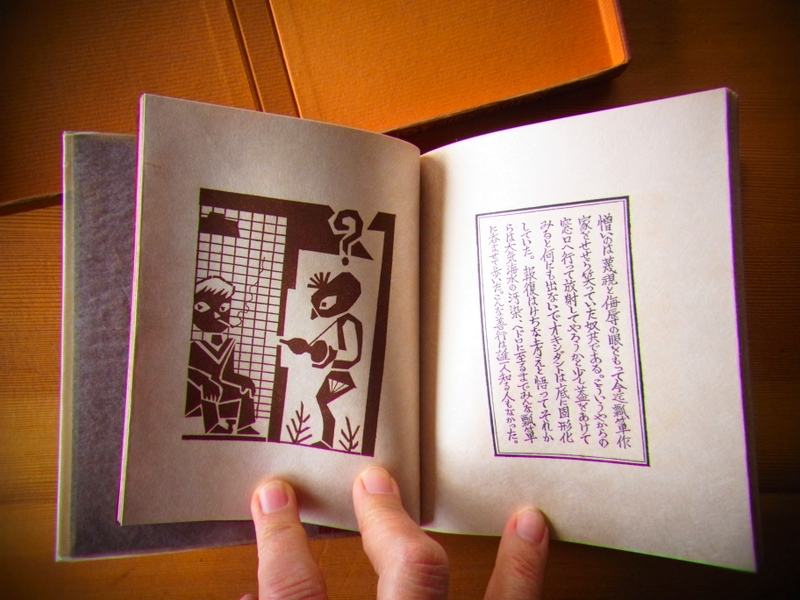 ?
憎いのは蔑視と侮辱の眼をもって今迄瓢箪作
家とせせら笑っていた奴共である。こういうやからの
窓口へ行って放射してやろうかと少し蓋をあけて
みると何にも出ないでオキシダントは底に固形化
していた。報復はけちな考えと悟ってそれか
らは大気、海水の汚染、ヘドロに至るまでみんな瓢箪
に呑ませて歩いた。こんな善行は誰一人知る人もなかった。